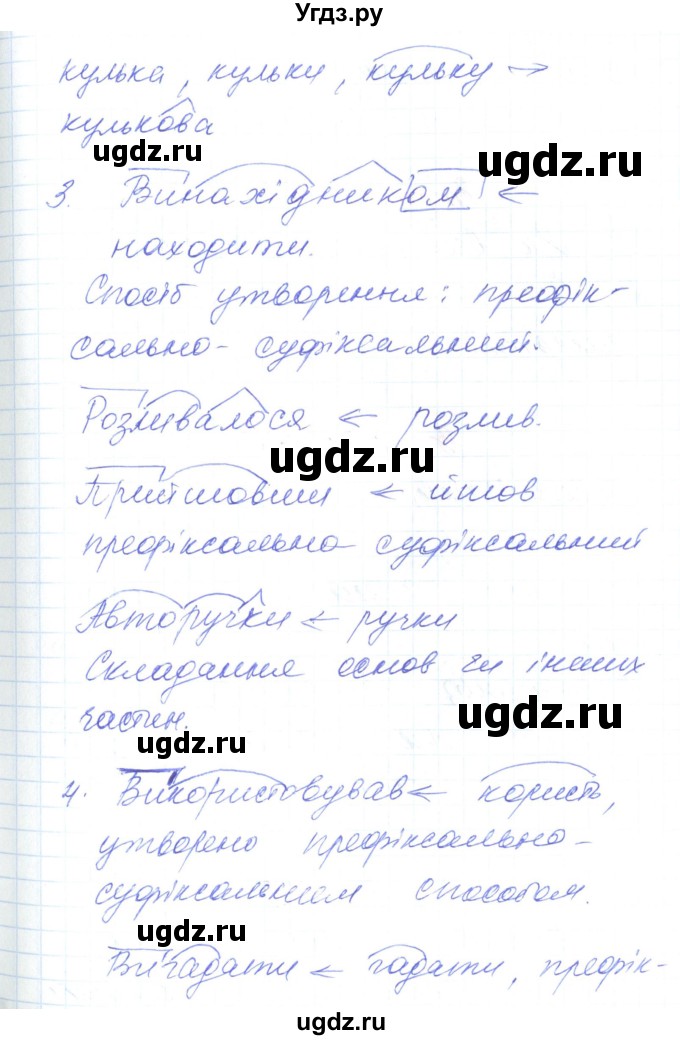 Угдз.ру
кулька, кульки, кульку →
кулькова
ugdz.ru
3. Винахідником ←
находити.
Спосіб утворення: префік-
сально-суфіксальний.
Розливалося ← розлив.
ugdz.ru
ugdz.ru
Прийшовши ← йшов
префіксально суфіксальний
Авторучки ← ручки
Складання основ чи інших
частин.
ugdz.ru
ugdz.ru
4. Використовував ← користь,
утворено префіксально-
суфіксальним способом.
ugdz.ru
Вигадати ← гадати, префік-
ugdz.ru